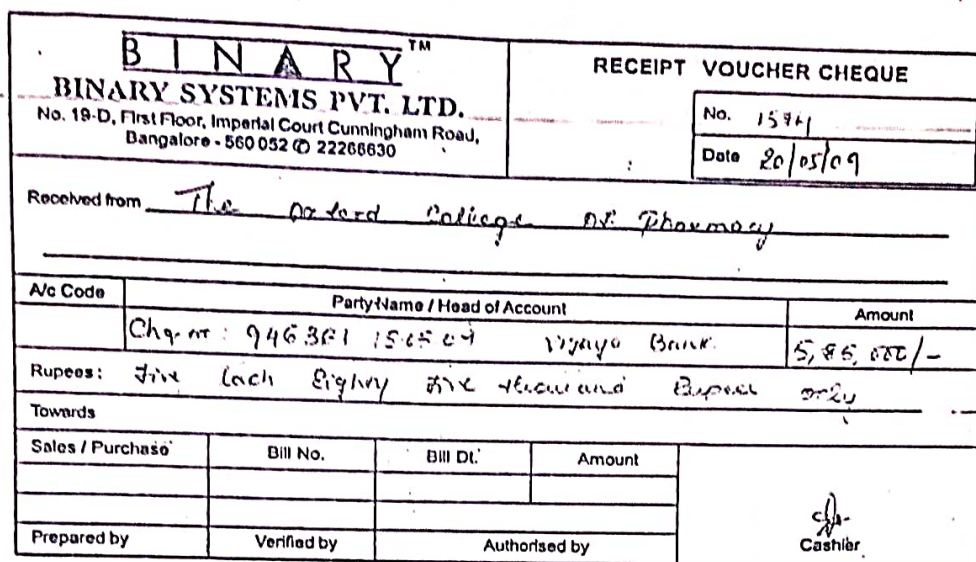 BINARY™
BINARY SYSTEMS PVT. LTD.
No. 19-D, First Floor, Imperial Court Cunningham Road,
Bangalore - 560 052 ✆ 22266630
RECEIPT VOUCHER CHEQUE
No.
Date 20/05/09
Received from The Oxford College of Pharmacy
A/c Code Party Name / Head of Account Amount
Chq. no: Vijaya Bank 5,85,000/-
Rupees: Five Lach Eighty Five thousand Rupees only
Towards
Sales / Purchase Bill No. Bill Dt. Amount
Prepared by Verified by Authorised by Cashier